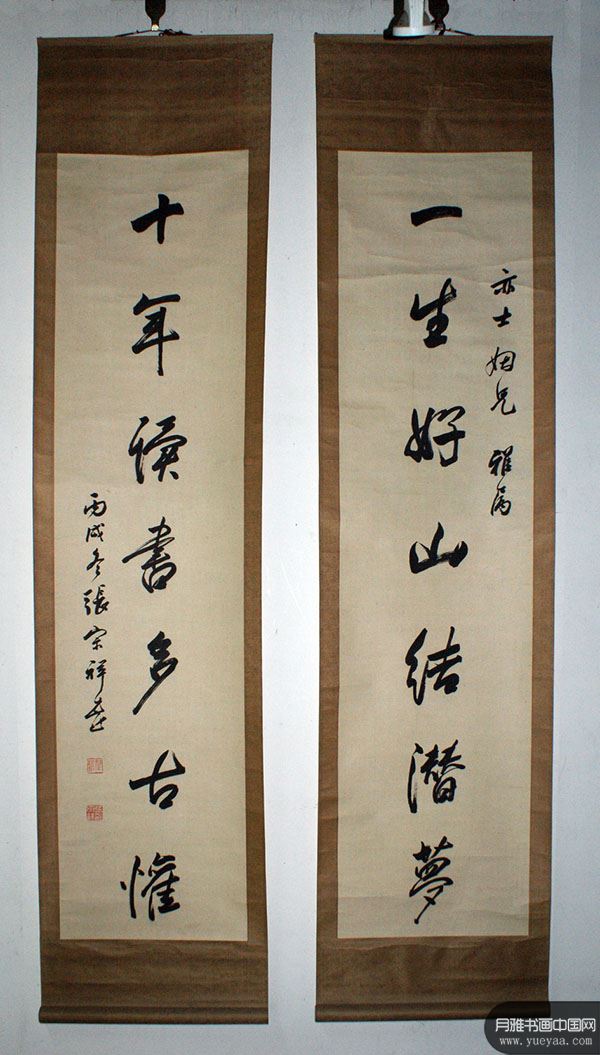 亦士姻兄 雅屬
一生好山結潛夢
十年讀書多古懽
丙戌冬張宗祥
月雅书画中国网
www.yueyaa.com